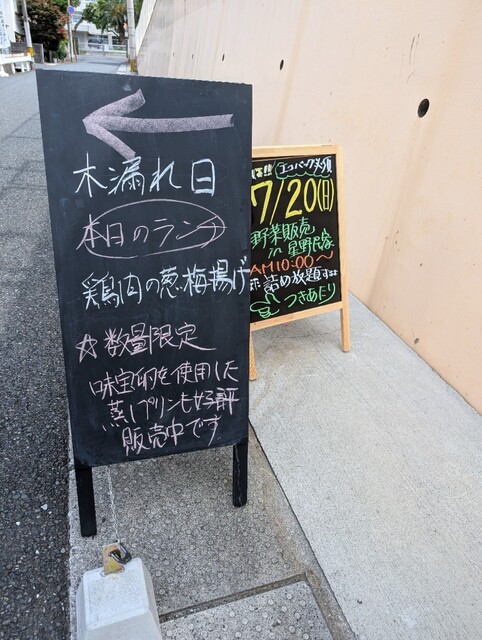 木漏れ日
本日のランチ
鶏肉の葱梅揚げ
☆数量限定
味宝卵を使用した
蒸しプリンも好評
販売中です
エコバック必須
7/20(日)
野菜販売
in 星野民家
AM10:00〜
詰め放題
つきあたり